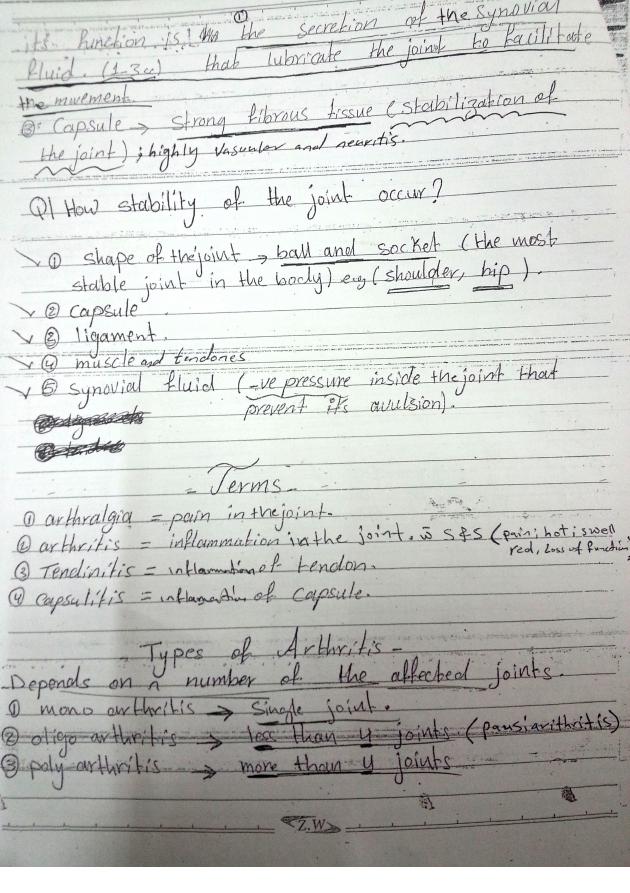 ①
its function is the secretion of the synovial
fluid. (1-3cc) that lubricate the joint to facilitate
the movement.
③: Capsule → strong fibrous tissue (stabilization of
the joint) ; highly vascular and neuritis.
Q1 How stability of the joint occur?
① shape of the joint → ball and socket (the most
stable joint in the body) e.g (shoulder, hip).
② capsule
③ ligament.
④ muscle and tendones
⑤ synovial fluid (-ve pressure inside the joint that
prevent its avulsion).
- Terms -
① arthralgia = pain in the joint.
② arthritis = inflammation in the joint. w̄ S&S (pain; hot; swell
red, Loss of function)
③ Tendinitis = inflammation of tendon.
④ Capsulitis = inflammation of Capsule.
- Types of Arthritis -
Depends on number of the affected joints.
① mono arthritis → Single joint.
② oligo arthritis → less than 4 joints (pausiarithritis)
③ poly-arthritis → more than 4 joints
Z.W